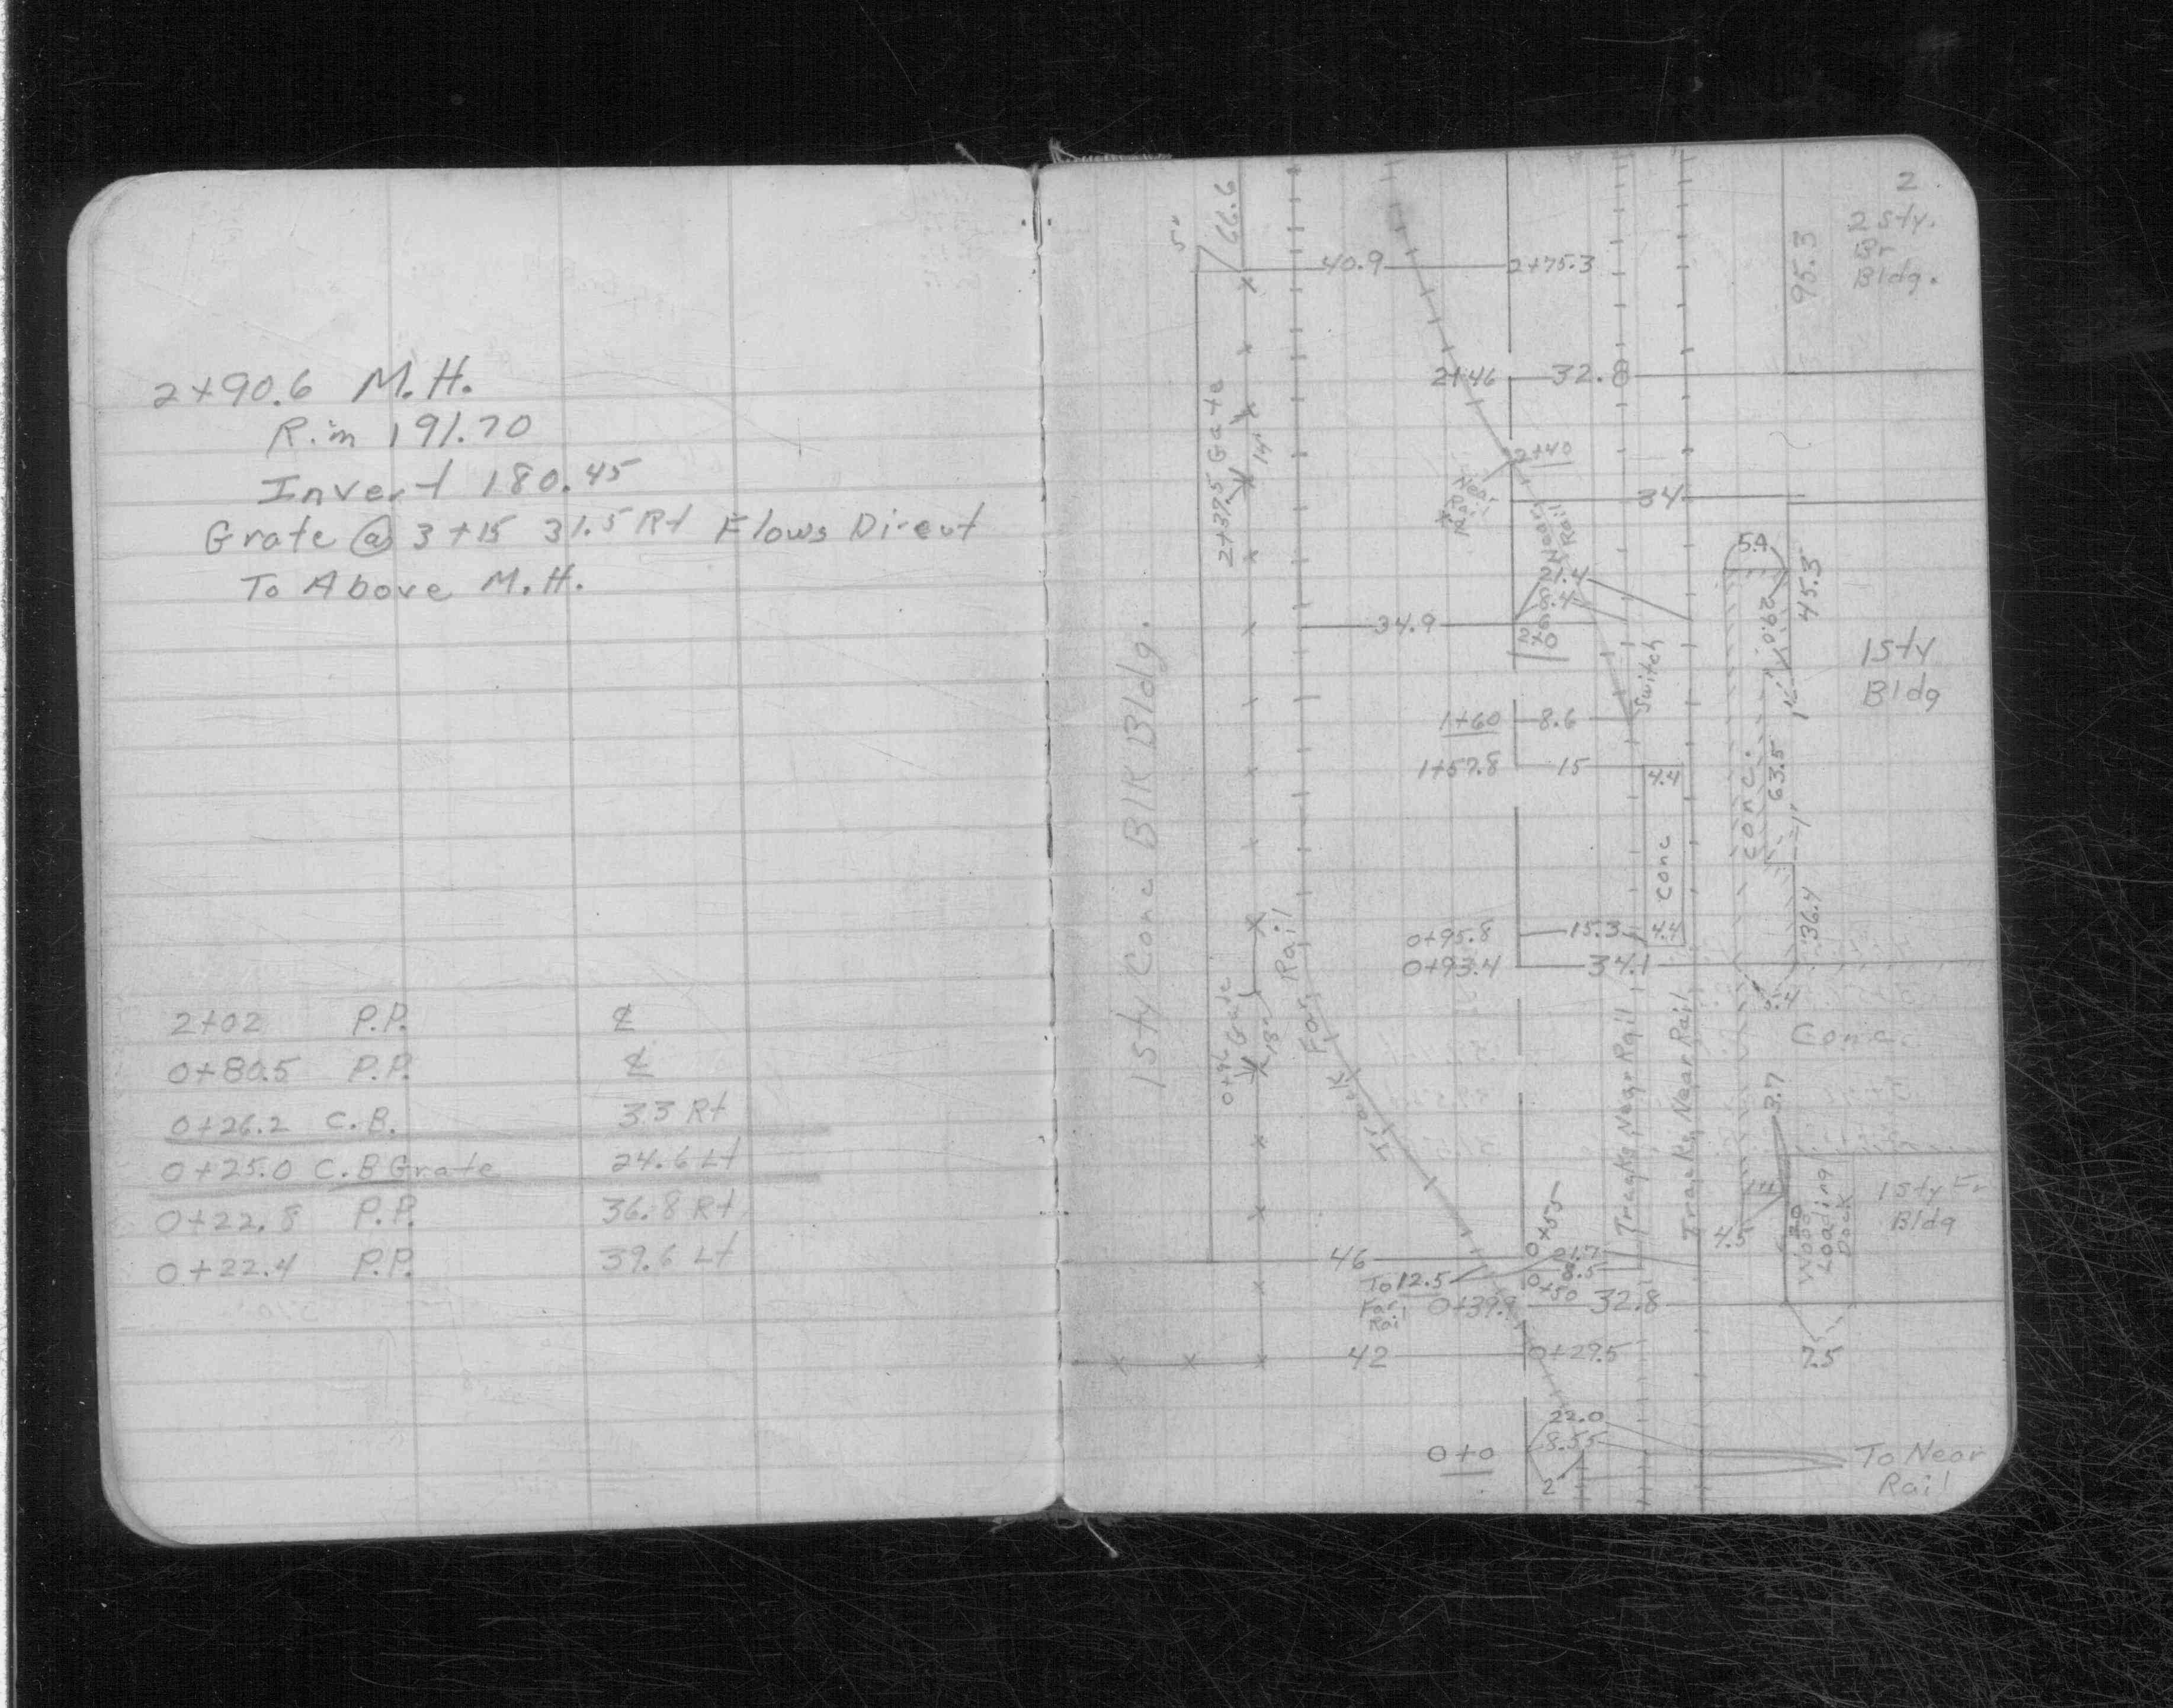 2+90.6 M.H.
Rim 191.70
Invert 180.45
Grate @ 3+15 31.5 Rt Flows Direct
To Above M.H.
2+02 P.P. ℄
0+80.5 P.P. ℄
0+26.2 C.B. 33 Rt
0+25.0 C.B Grate 24.6 Lt
0+22.8 P.P. 36.8 Rt
0+22.4 P.P. 39.6 Lt
2
2 sty.
Br
Bldg.
95.3
5"
66.6
40.9 2+75.3
2+46 32.8
2+37.5 Gate
14'
2+40
To Near Rail
34
Near Rail
5.4
45.3
29.0
21.4
34.9
1 Sty
Bldg
Switch
1sty Conc Blk Bldg.
1+60 8.6
1+57.8 15 4.4
Conc.
63.5
1"
Conc
36.4
0+95.8 15.3 4.4
0+93.4 34.1
Far Rail
0+96 Gate
18'
5.4
Conc.
Track
Track Near Rail
Track Near Rail
3.7
4.5
Wood
Loading
Dock
1 Sty Fr
Bldg
0+55
46
To 12.5
Far
Rail
0+50
0+39.9 32.8
42 0+29.5
7.5
22.0
8.55
0+0
2"
To Near
Rail